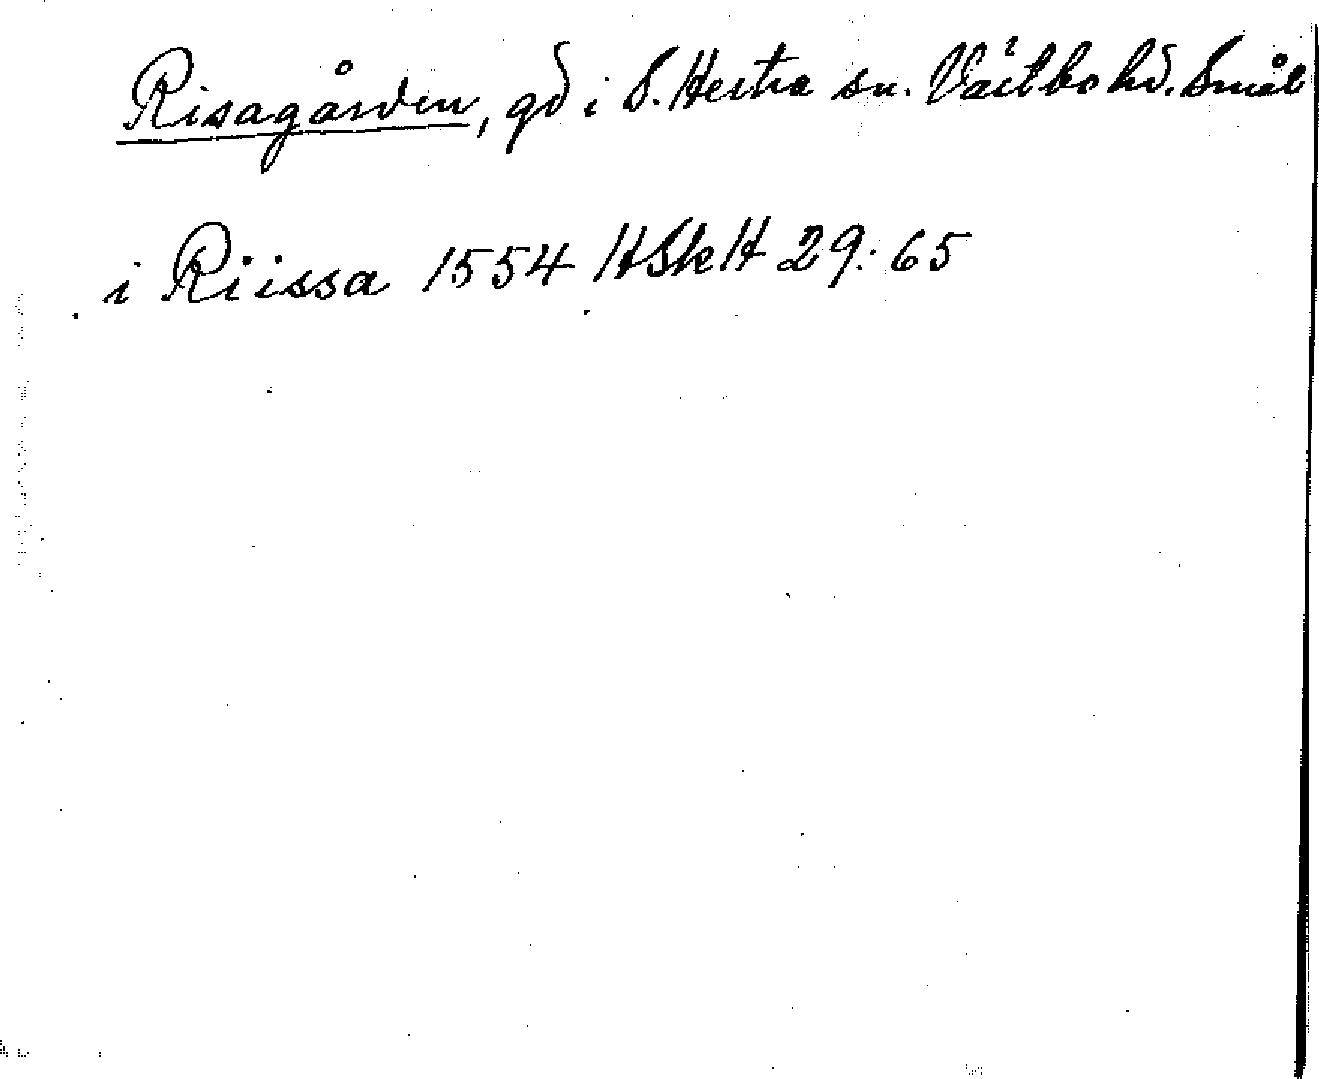 Risagården, gd i S. Hestra sn. Västbo hd. Smål
i Riissa 1554 HSkH 29:65